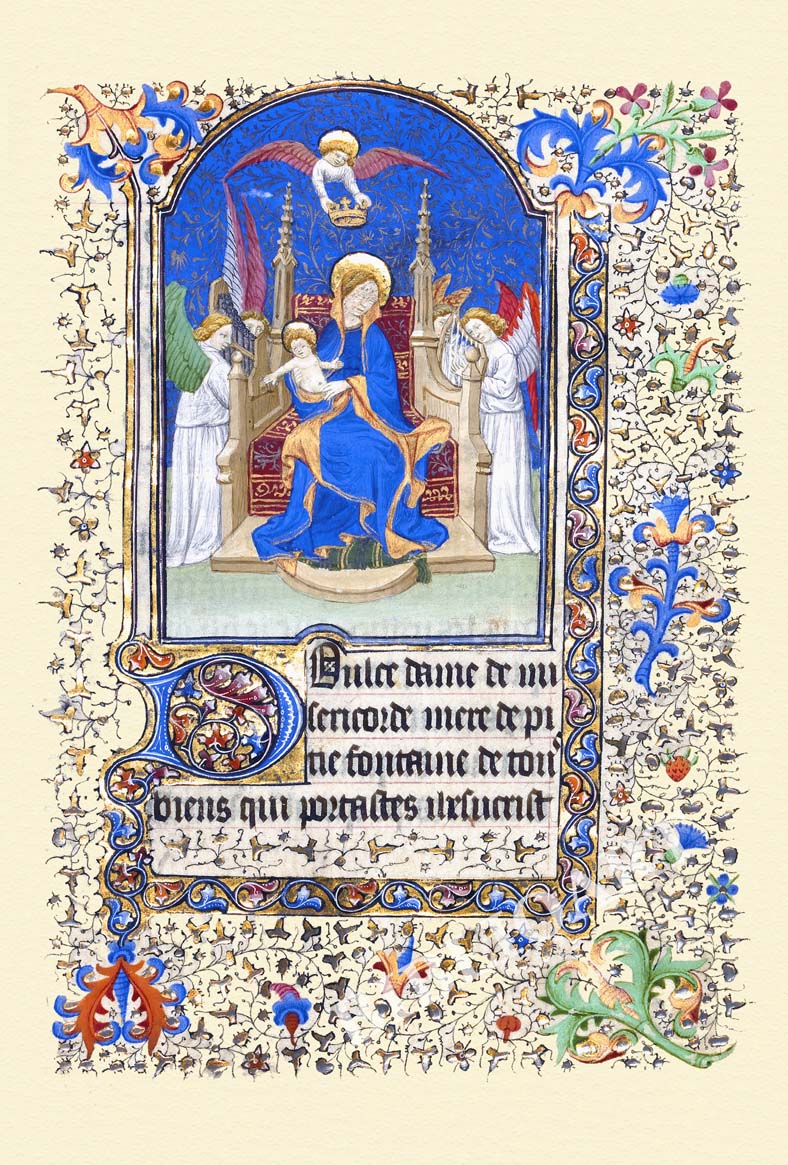 DOulce dame de mi
sericorde mere de pi
tie fontaine de tous
biens qui portastes ihesucrist